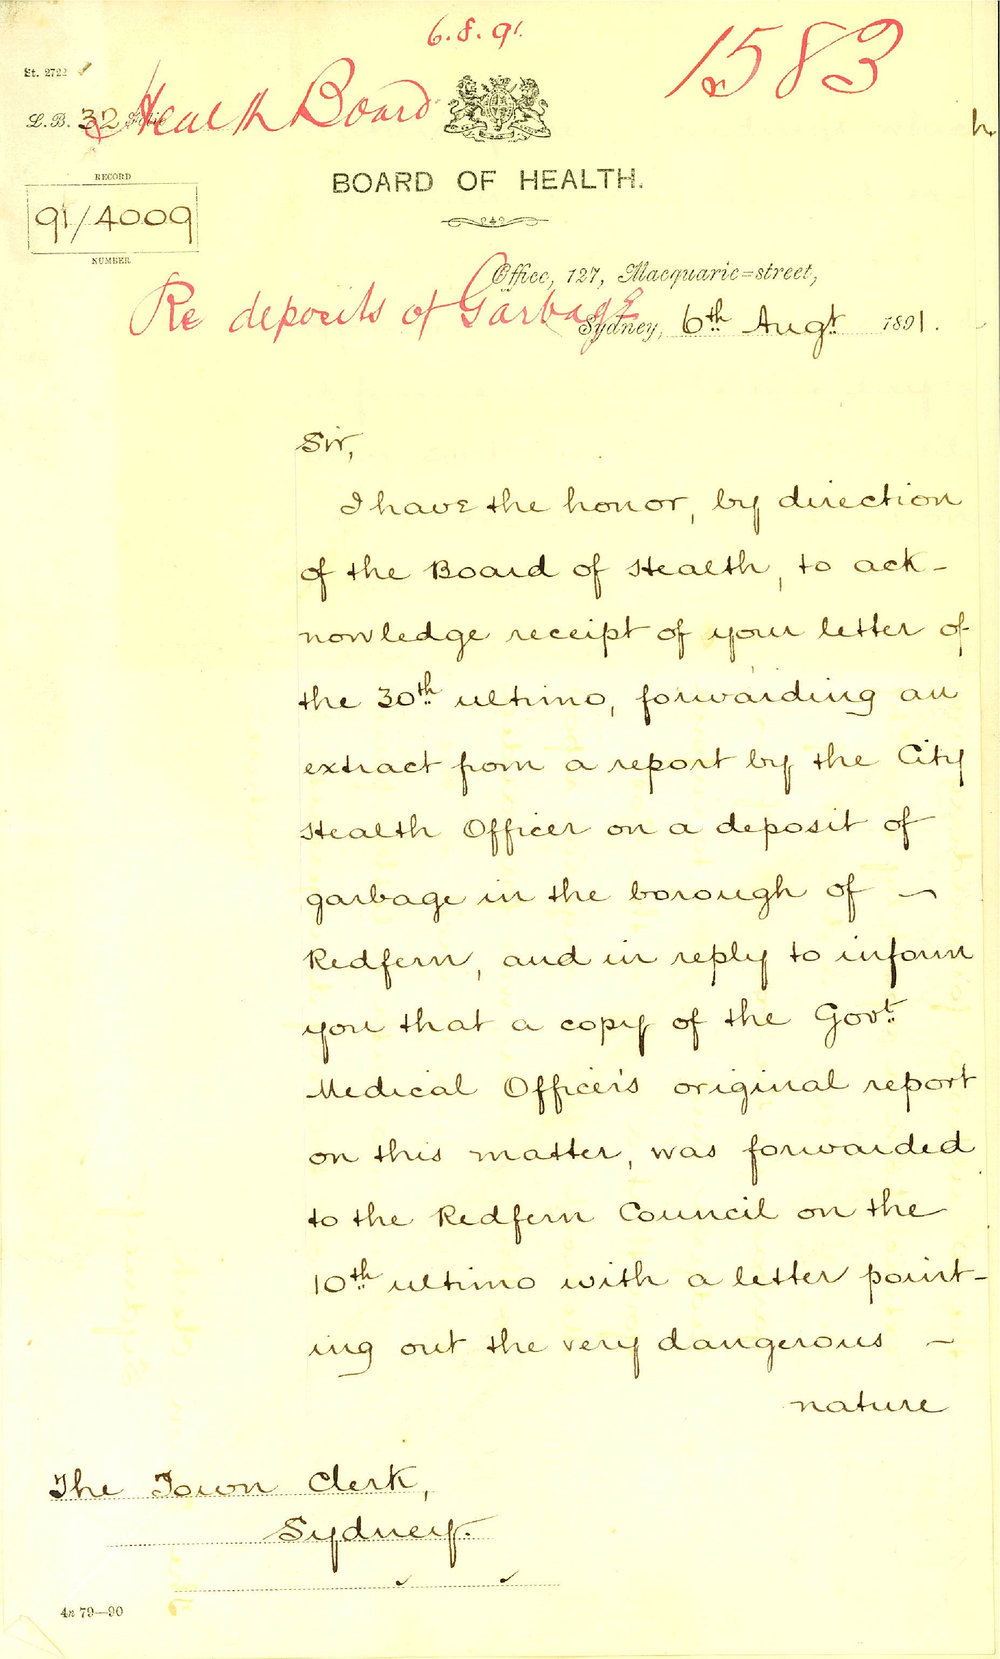 6.8.91.
1583
St. 2722
Health Board
L.B. 32 Folio
BOARD OF HEALTH.
RECORD
91/4009
NUMBER
Office, 127, Macquarie=street,
Re deposits of Garbage
Sydney, 6th Augt. 1891.
Sir,
I have the honor, by direction
of the Board of Health, to ack-
nowledge receipt of your letter of
the 30th ultimo, forwarding an
extract from a report by the City
Health Officer on a deposit of
garbage in the borough of —
Redfern, and in reply to inform
you that a copy of the Govt.
Medical Officer's original report
on this matter, was forwarded
to the Redfern Council on the
10th ultimo with a letter point-
ing out the very dangerous —
nature
The Town Clerk,
Sydney.
4a 79—90